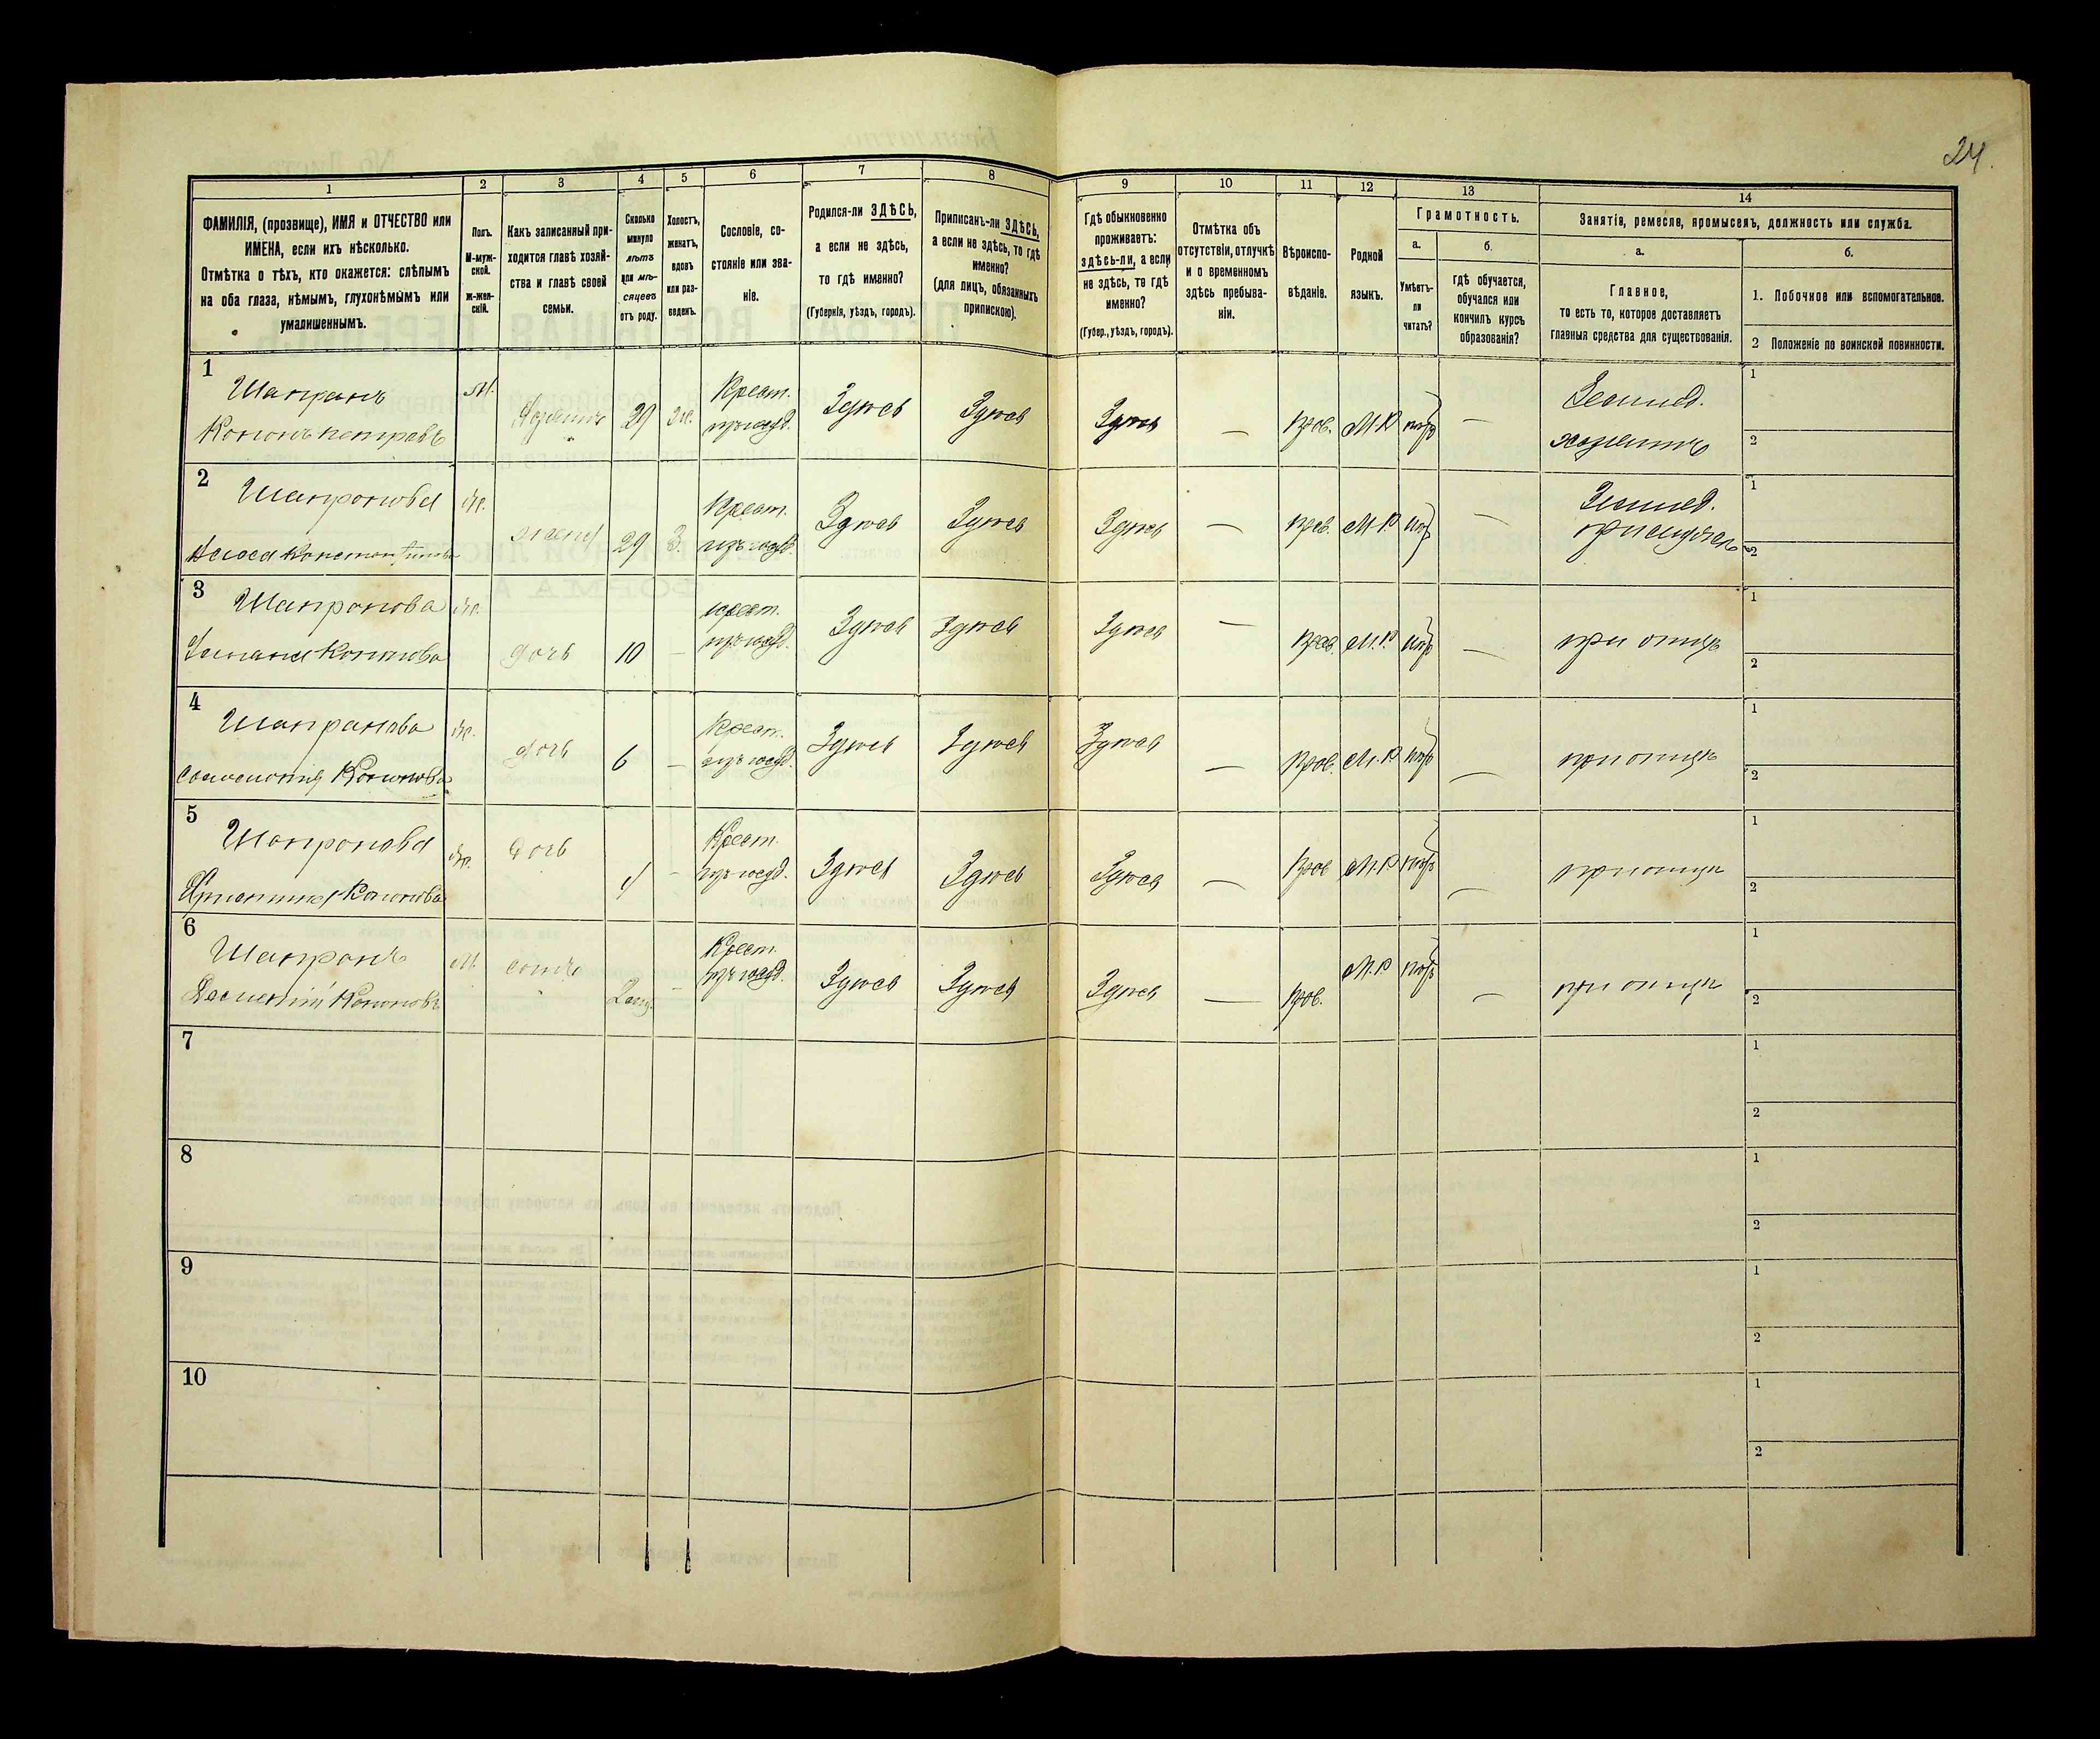 24.
1 2 3 4 5 6 7 8 9 10 11 12 13 14
ФАМИЛІЯ, (прозвище), ИМЯ и ОТЧЕСТВО или
ИМЕНА, если ихъ нѣсколько.
Отмѣтка о тѣхъ, кто окажется: слѣпымъ
на оба глаза, нѣмымъ, глухонѣмымъ или
умалишеннымъ.
Полъ.
М-муж-
ской.
Ж-жен-
скій.
Какъ записанный при-
ходится главѣ хозяй-
ства и главѣ своей
семьи.
Сколько
минуло
лѣтъ
или мѣ-
сяцевъ
отъ роду.
Холостъ,
женатъ,
вдовъ
или раз-
веденъ.
Сословіе, со-
стояніе или зва-
ніе.
Родился-ли ЗДѢСЬ,
а если не здѣсь,
то гдѣ именно?
(Губернія, уѣздъ, городъ).
Приписанъ-ли ЗДѢСЬ,
а если не здѣсь, то гдѣ
именно?
(для лицъ, обязанныхъ
припискою).
Гдѣ обыкновенно
проживаетъ:
здѣсь-ли, а если
не здѣсь, то гдѣ
именно?
(Губер., уѣздъ, городъ).
Отмѣтка объ
отсутствіи, отлучкѣ
и о временномъ
здѣсь пребыва-
ніи.
Вѣроиспо-
вѣданіе.
Родной
языкъ.
Грамотность.
а.
Умѣетъ-
ли
читать?
б.
гдѣ обучается,
обучался или
кончилъ курсъ
образованія?
Занятія, ремесло, промыселъ, должность или служба.
а.
Главное,
то есть то, которое доставляетъ
главныя средства для существованія.
б.
1. Побочное или вспомогательное.
2 Положеніе по воинской повинности.
1
Шапранъ
Кононъ Петровъ
М. Хозяинъ 29 ж. Крест. Здѣсь Здѣсь Здѣсь — Прав. М.Р —
Землед.
хозяинъ
1
2
2
Шапронова
Ж. жена 29 З. Крест. Здѣсь Здѣсь Здѣсь — Прав. М.Р —
Землед.
1
2
3
Шапронова
Кононова
Ж. дочь 10 — крест. Здѣсь Здѣсь Здѣсь — Прав. М.Р —
при отцѣ
1
2
4
Шапранова
Кононова
Ж. дочь 6 — Крест. Здѣсь Здѣсь Здѣсь — Прав. М.Р —
при отцѣ
1
2
5
Шапронова
Кононова
Ж. дочь 4 — Крест. Здѣсь Здѣсь Здѣсь — Прав. М.Р —
при отцѣ
1
2
6
Шапронъ
Кононовъ
М. сынъ — Крест. Здѣсь Здѣсь Здѣсь — Прав. М.Р —
при отцѣ
1
2
7
1
2
8
1
2
9
1
2
10
1
2